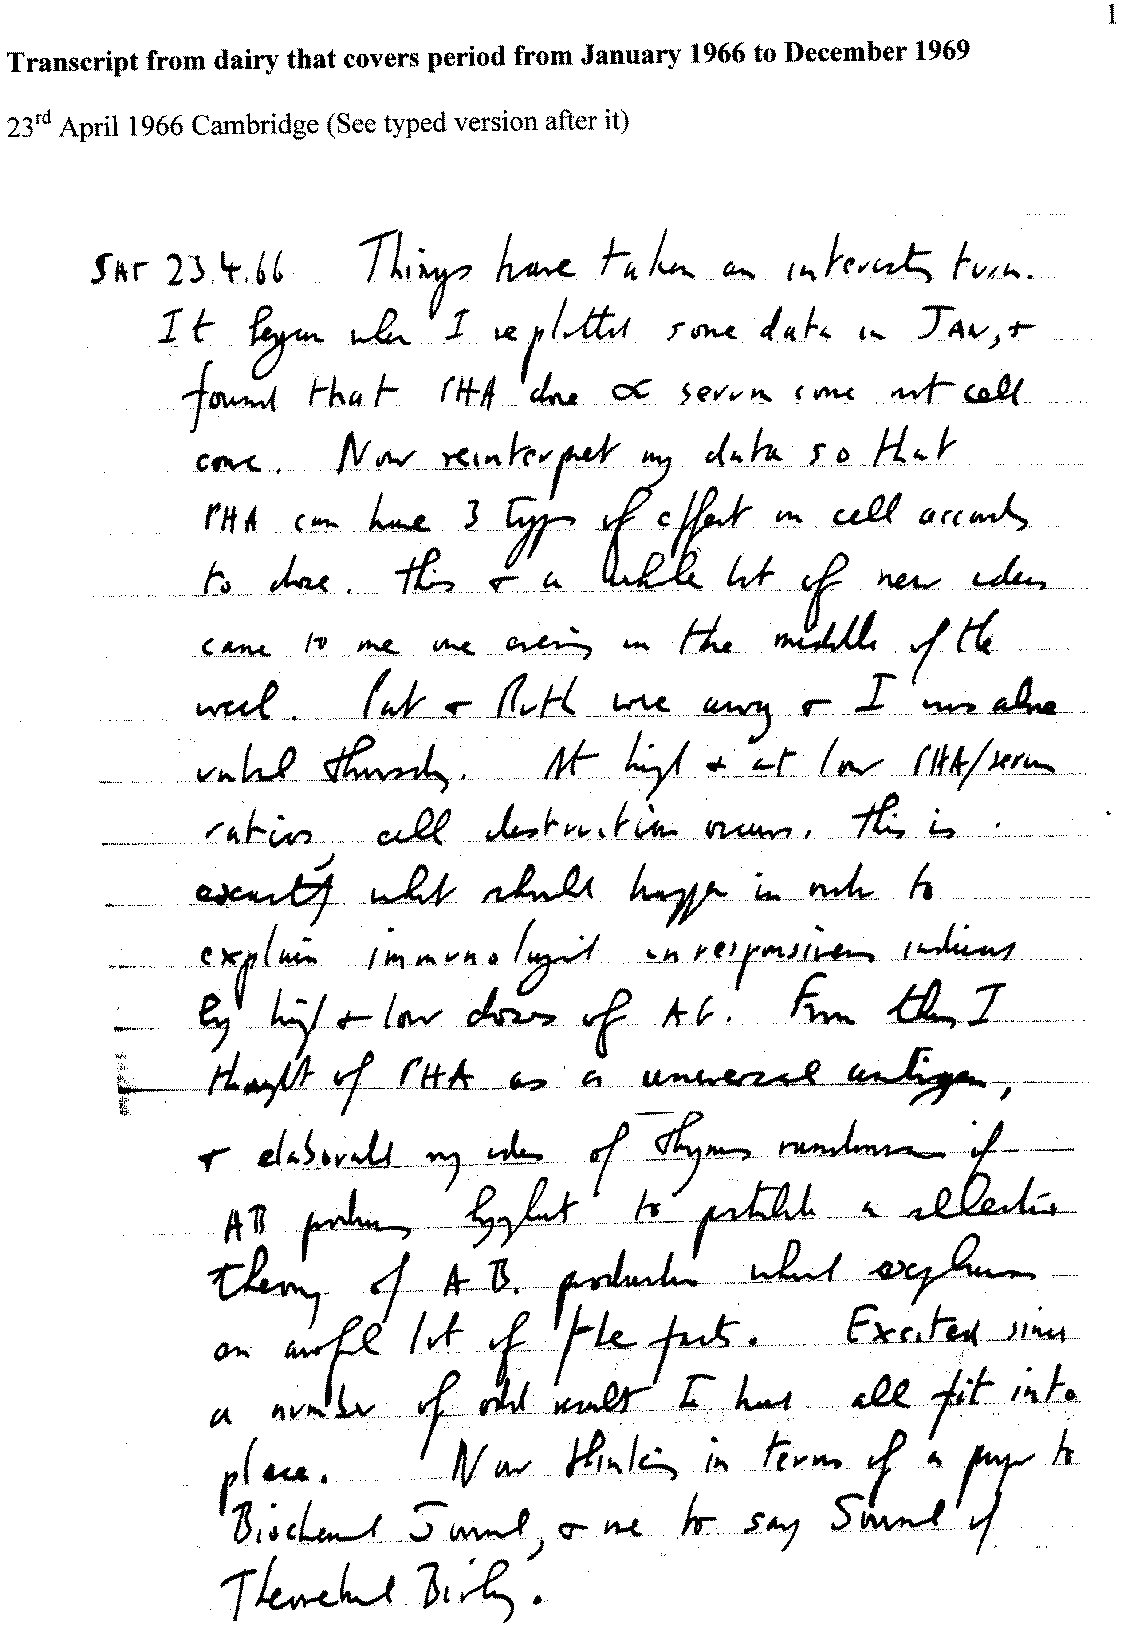 1
Transcript from dairy that covers period from January 1966 to December 1969
23rd April 1966 Cambridge (See typed version after it)
SAT 23.4.66 Things have taken an interesting turn.
It began when I replotted some data in JAN, +
found that PHA dose ∝ serum conc not cell
conc. Now reinterpret my data so that
PHA can have 3 types of effect on cell according
to dose. This + a whole lot of new ideas
came to me one evening in the middle of the
week. Pat + Ruth were away + I was alone
until Thursday. At high + at low PHA/serum
ratios cell destruction occurs. This is
exactly what should happen in order to
explain immunological unresponsiveness induced
by high + low doses of AG. From then I
thought of PHA as a universal antigen,
+ elaborated my idea of Thymus randomness of
AB producing to postulate a selective
theory of AB. production which explains
an awful lot of the facts. Excited since
a number of odd results I had all fit into
place. Now thinking in terms of a paper to
Biochemical Journal, + one to say Journal of
Theoretical Biology.